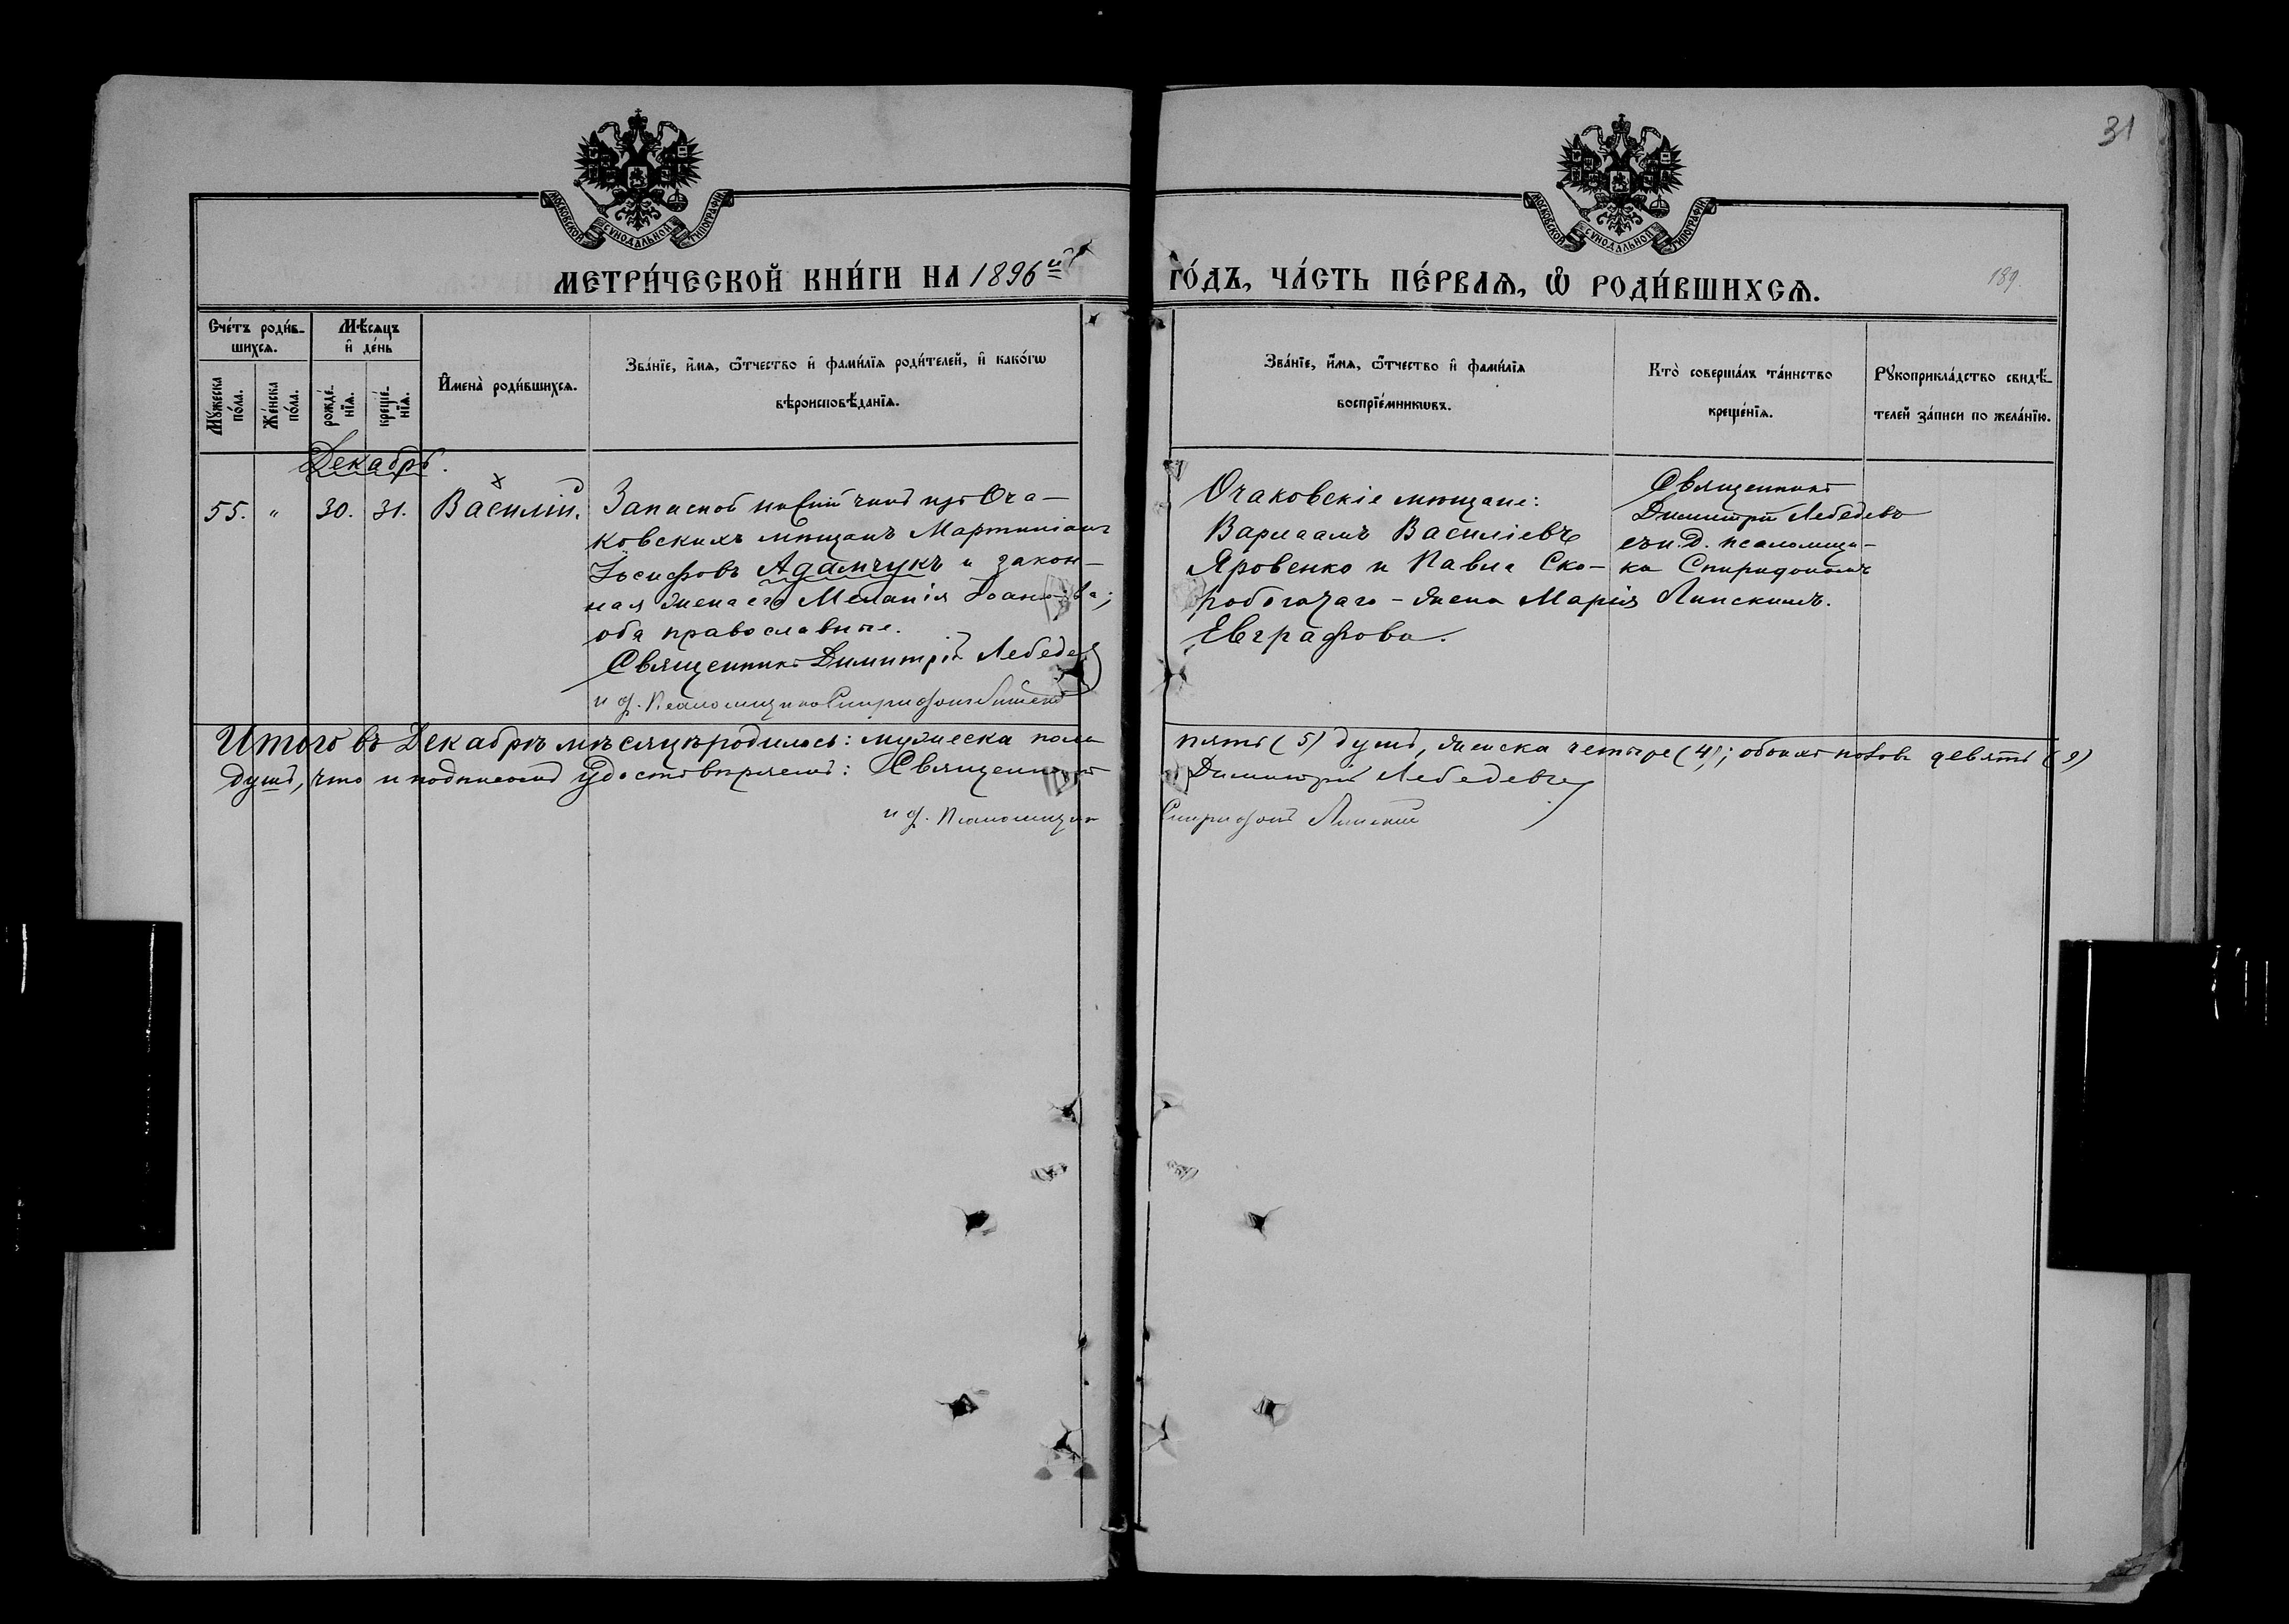 31
МОСКОВСКОЙ СѴНОДАЛЬНОЙ ТИПОГРАФІИ
МОСКОВСКОЙ СѴНОДАЛЬНОЙ ТИПОГРАФІИ
МЕТРИ́ЧЕСКОЙ КНИ́ГИ НА 1896й
ГО́ДЪ, ЧА́СТЬ ПЕ́РВАѦ, Ѡ҆ РОДИ́ВШИХСѦ.
189.
Сче́тъ роди́в-
шихсѧ.
Мѣ́сѧцъ
и҆ де́нь
Мꙋ́жеска
по́ла.
Же́нска
по́ла.
рожде́-
нїѧ.
креще́-
нїѧ.
И҆мена̀ роди́вшихсѧ.
Зва́нїе, и҆́мѧ, ѻ҆́тчество и҆ фами́лїѧ роди́телей, и҆ како́гѡ
вѣроисповѣ́данїѧ.
Зва́нїе, и҆́мѧ, ѻ҆́тчество и҆ фами́лїѧ
воспрїе́мникѡвъ.
Кто̀ соверша́лъ та́инство
креще́нїѧ.
Рꙋкоприкла́дство свидѣ́-
телей за́писи по жела́нїю.
Декабрь.
55. " 30. 31. Василій.
Запасной нисшій чинъ изъ Оча-
ковскихъ мѣщанъ Мартиніанъ
Іосифовъ Адамчукъ и закон-
ная жена его Меланія Іоаннова;
оба православные.
Священникъ Димитрій Лебедев
и д. Псаломщика Спиридонъ Липскій
Очаковскіе мѣщане:
Варлаамъ Василіевъ
Яровенко и Павла Ско-
робогатаго - жена Марія
Евграфова.
Священникъ
Димитрій Лебедевъ
съ и. д. псаломщи-
ка Спиридономъ
Липскимъ.
Итого въ Декабрѣ мѣсяцѣ родилось: мужеска пола пять (5) душъ, женска четыре (4); обоихъ половъ девять (9)
душъ, что и подписомъ удостовѣряемъ: Священникъ Димитрій Лебедевъ
и д. Псаломщик Спиридонъ Липскій